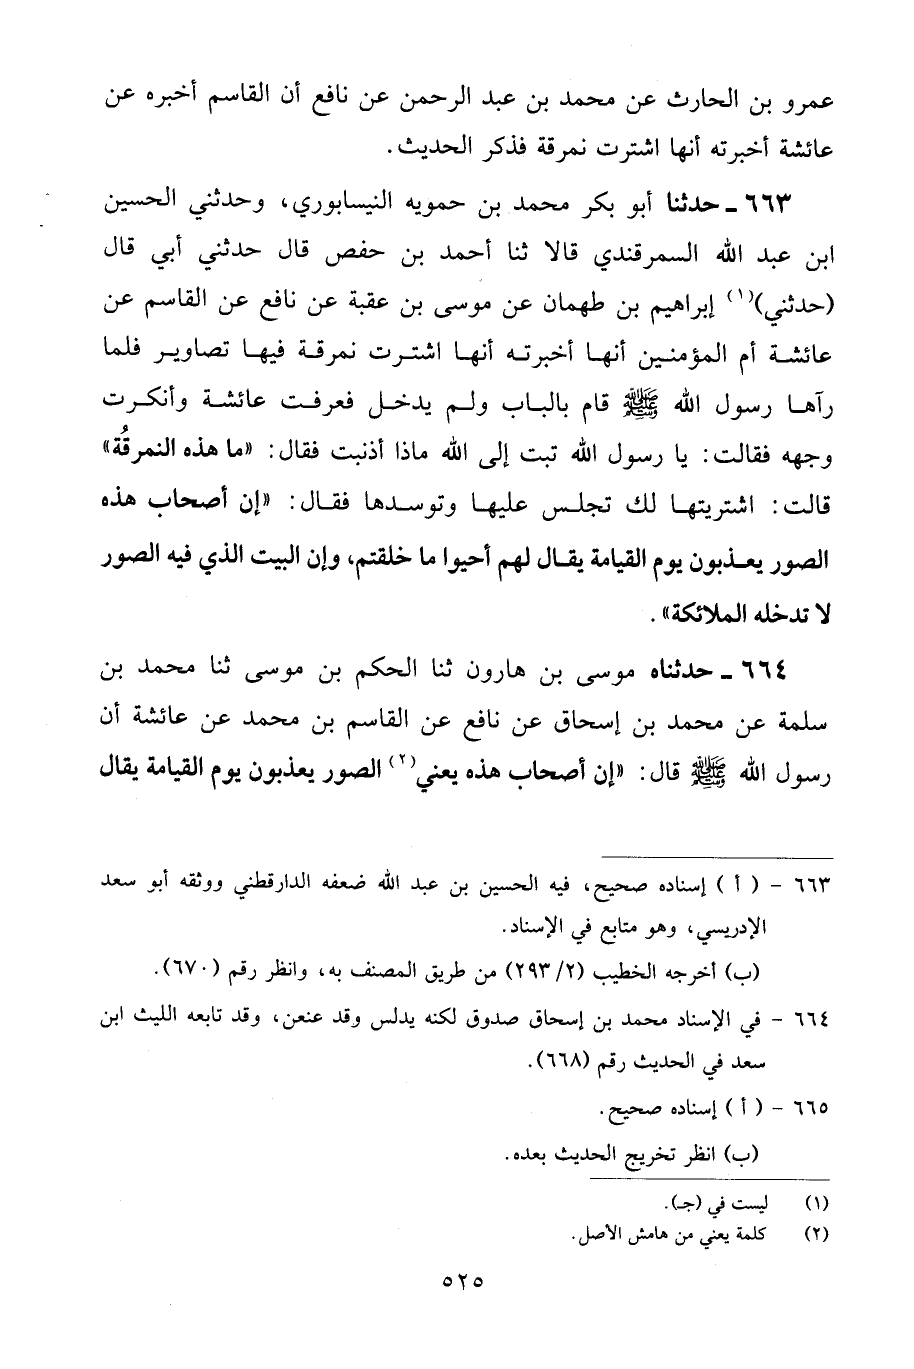 عمرو بن الحارث عن محمد بن عبد الرحمن عن نافع أن القاسم أخبره عن
عائشة أخبرته أنها اشترت نمرقة فذكر الحديث.
٦٦٣ - حدثنا أبو بكر محمد بن حمويه النيسابوري، وحدثني الحسين
ابن عبد الله السمرقندي قالا ثنا أحمد بن حفص قال حدثني أبي قال
(حدثني)(١) إبراهيم بن طهمان عن موسى بن عقبة عن نافع عن القاسم عن
عائشة أم المؤمنين أنها أخبرته أنها اشترت نمرقة فيها تصاوير فلما
رآها رسول الله ﷺ قام بالباب ولم يدخل فعرفت عائشة وأنكرت
وجهه فقالت: يا رسول الله تبت إلى الله ماذا أذنبت فقال: «ما هذه النمرقُة»
قالت: اشتريتها لك تجلس عليها وتوسدها فقال: «إن أصحاب هذه
الصور يعذبون يوم القيامة يقال لهم أحيوا ما خلقتم، وإن البيت الذي فيه الصور
لا تدخله الملائكة».
٦٦٤ - حدثناه موسى بن هارون ثنا الحكم بن موسى ثنا محمد بن
سلمة عن محمد بن إسحاق عن نافع عن القاسم بن محمد عن عائشة أن
رسول الله ﷺ قال: «إن أصحاب هذه يعني(٢) الصور يعذبون يوم القيامة يقال
٦٦٣ - ( أ ) إسناده صحيح، فيه الحسين بن عبد الله ضعفه الدارقطني ووثقه أبو سعد
الإدريسي، وهو متابع في الإسناد.
(ب) أخرجه الخطيب (٢/ ٢٩٣) من طريق المصنف به، وانظر رقم (٦٧٠).
٦٦٤ - في الإسناد محمد بن إسحاق صدوق لكنه يدلس وقد عنعن، وقد تابعه الليث ابن
سعد في الحديث رقم (٦٦٨).
٦٦٥ - ( أ ) إسناده صحيح.
(ب) انظر تخريج الحديث بعده.
(١) ليست في (جـ).
(٢) كلمة يعني من هامش الأصل.
٥٢٥